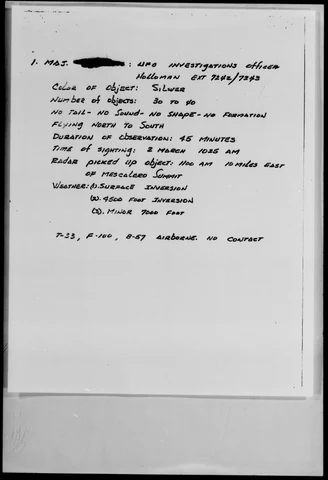 1. MAJ. : UFO INVESTIGATIONS OFFICER
HOLLOMAN EXT 7240/7243
COLOR OF OBJECT: SILVER
NUMBER OF OBJECTS: 30 TO 40
NO TAIL - NO SOUND - NO SHAPE - NO FORMATION
FLYING NORTH TO SOUTH
DURATION OF OBSERVATION: 45 MINUTES
TIME OF SIGHTING: 2 MARCH 1025 AM
RADAR PICKED UP OBJECT: 1100 AM 10 MILES EAST
OF MESCALERO SUMMIT
WEATHER: (1). SURFACE INVERSION
(2). 4500 FOOT INVERSION
(3). MINOR 7000 FOOT
T-33, F-100, B-57 AIRBORNE. NO CONTACT